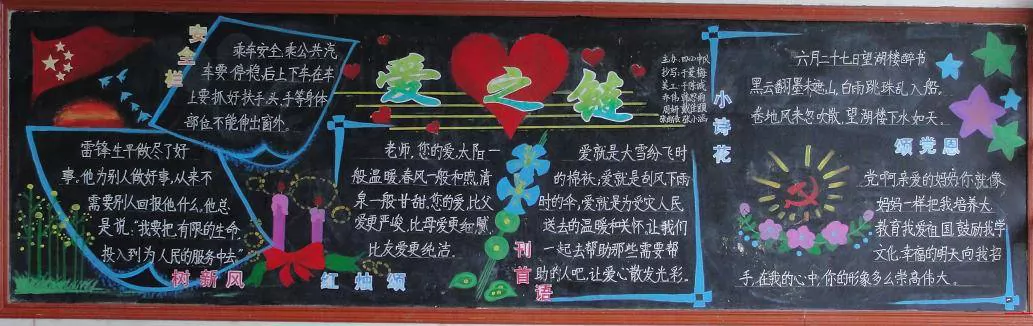 安全栏
乘车安全:乘公共汽
车要停稳后上下车在车
上要抓好扶手头、手等身体
部位不能伸出窗外。
雷锋生平做尽了好
事。他为别人做好事,从来不
需要别人回报他什么。他总
是说:“我要把有限的生命,
投入到为人民的服务中去
树新风
爱之链
主办:四(1)中队
老师,您的爱,太阳一
般温暖,春风一般和煦,清
泉一般甘甜。您的爱,比父
爱更严峻,比母爱更细腻,
比友爱更纯洁。
红烛颂
爱就是大雪纷飞时
的棉袄,爱就是刮风下雨
时的伞,爱就是为受灾人民
送去的温暖和关怀,让我们
一起去帮助那些需要帮
助的人吧,让爱心散发光彩。
刊首语
小诗花
六月二十七日望湖楼醉书
黑云翻墨未遮山,白雨跳珠乱入船。
卷地风来忽吹散,望湖楼下水如天。
颂党恩
党啊亲爱的妈妈你就像
妈妈一样把我培养大
教育我爱祖国鼓励我学
文化幸福的明天向我招
手,在我的心中,你的形象多么崇高伟大。